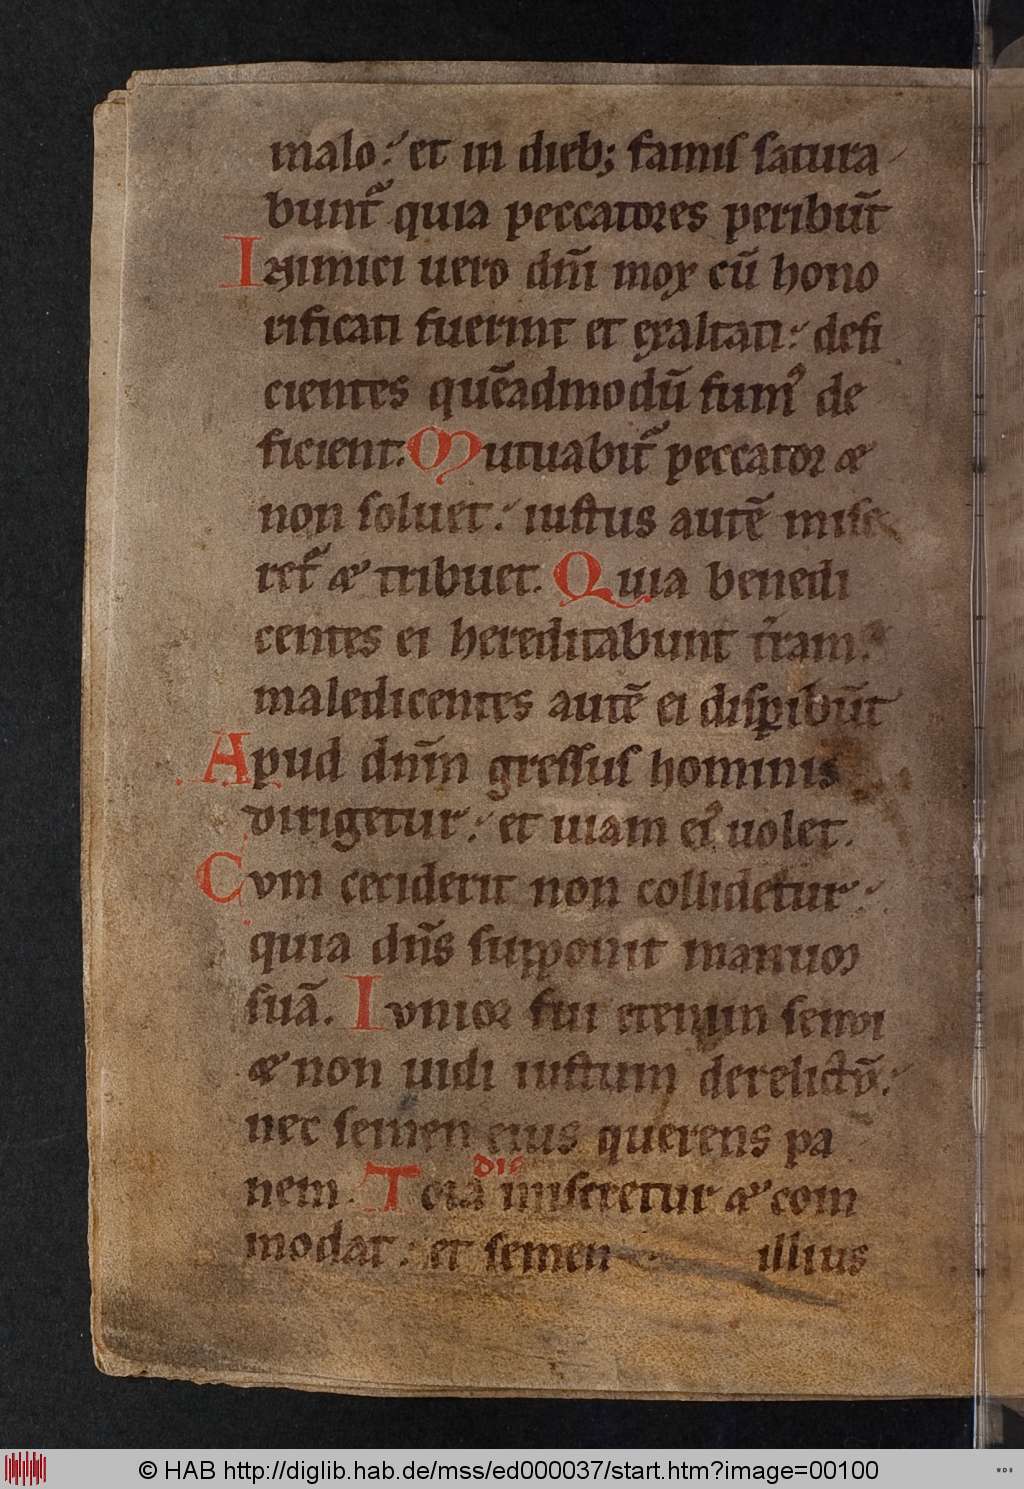 malo: et in dieb; famis satura
bunt᷑ quia peccatores peribūt
Inimici uero dn̄i mox cū hono
rificati fuerint et exaltati: defi
cientes quēadmodū fum᷒ de
ficient. Mutuabit᷑ peccator æ
non soluet: iustus autē mise
ret᷑ æ tribuet. Quia benedi
centes ei hereditabunt t̄ram:
maledicentes autē ei disꝑibūt
Apud dn̄m gressus hominis
dirigetur: et uiam ei᷒ uolet.
Cvm ceciderit non collidetur:
quia dn̄s supponit manum
suā. Ivnior fui etenim senvi
æ non uidi iustum derelictv̄:
nec semen eius querens pa
nem. Tota die miseretur æ com
modat: et semen illius
© HAB http://diglib.hab.de/mss/ed000037/start.htm?image=00100